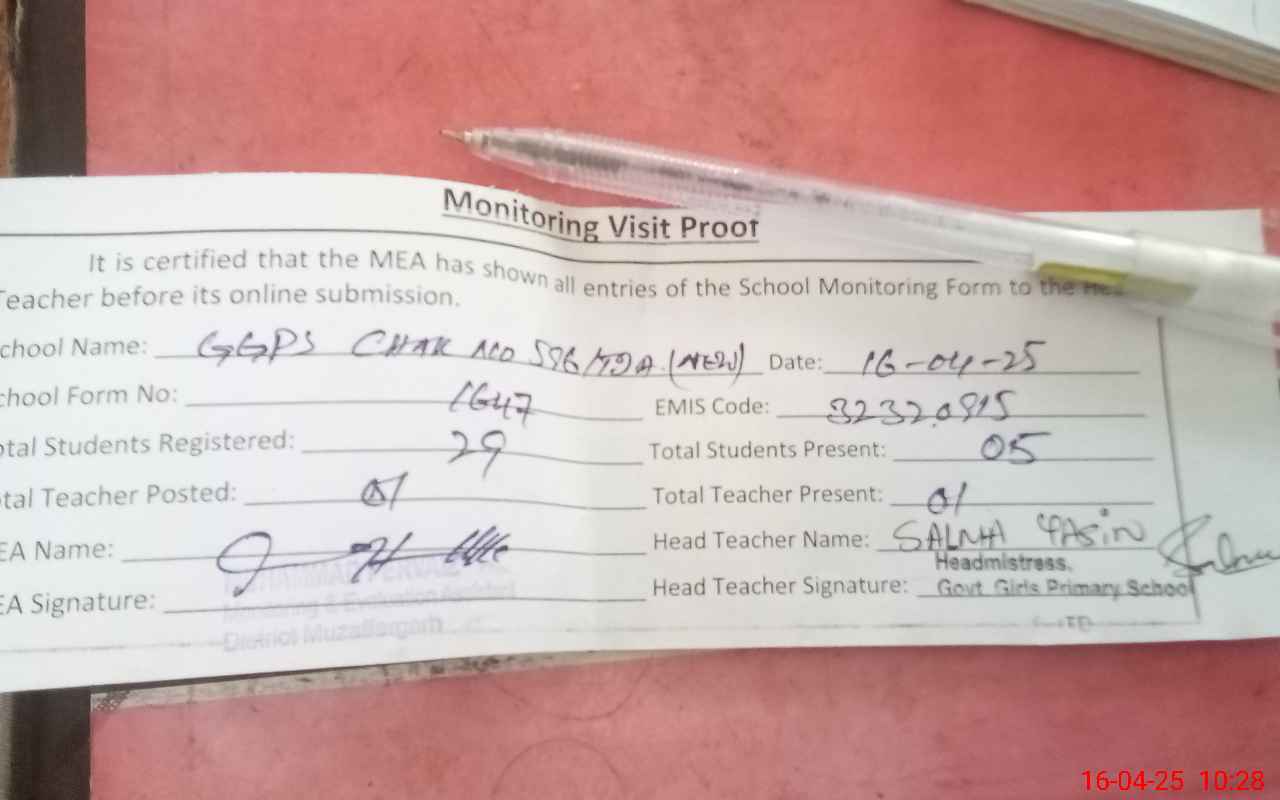 Monitoring Visit Proof
It is certified that the MEA has shown all entries of the School Monitoring Form to the
Teacher before its online submission.
chool Name: GGPS CHAK NO 596/TDA (NEW) Date: 16-04-25
chool Form No: 1647 EMIS Code: 32320915
otal Students Registered: 29 Total Students Present: 05
tal Teacher Posted: 01 Total Teacher Present: 01
EA Name: Head Teacher Name: SALMA YASiN
Headmistress.
EA Signature: Head Teacher Signature: Govt. Girls Primary School
Monitoring & Evaluation Assistant
District Muzaffargarh
16-04-25 10:28